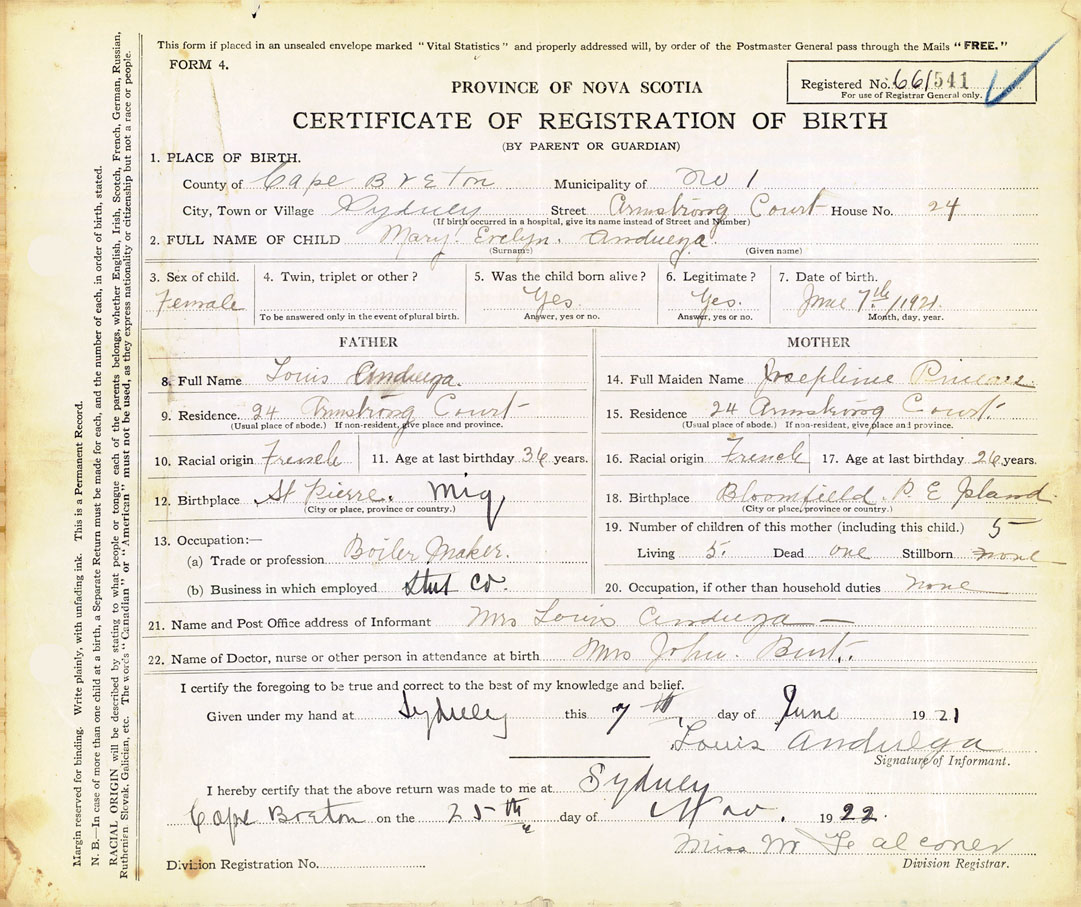 This form if placed in an unsealed envelope marked "Vital Statistics" and properly addressed will, by order of the Postmaster General pass through the Mails "FREE."
FORM 4.
Registered No. 661541
For use of Registrar General only.
PROVINCE OF NOVA SCOTIA
CERTIFICATE OF REGISTRATION OF BIRTH
(BY PARENT OR GUARDIAN)
1. PLACE OF BIRTH.
County of Cape Breton Municipality of No 1
City, Town or Village Sydney Street Armstrong Court House No. 24
(If birth occurred in a hospital, give its name instead of Street and Number)
2. FULL NAME OF CHILD Mary. Evelyn. Andueza.
(Surname) (Given name)
3. Sex of child. Female
4. Twin, triplet or other?
To be answered only in the event of plural birth.
5. Was the child born alive? Yes.
Answer, yes or no.
6. Legitimate? Yes.
Answer, yes or no.
7. Date of birth. June 7th/1921.
Month, day, year.
FATHER
8. Full Name Louis Andueza.
9. Residence. 24 Armstrong Court
(Usual place of abode.) If non-resident, give place and province.
10. Racial origin French 11. Age at last birthday 36 years.
12. Birthplace St Pierre. Miq
(City or place, province or country.)
13. Occupation:—
(a) Trade or profession Boiler Maker.
(b) Business in which employed Co.
MOTHER
14. Full Maiden Name Josephine
15. Residence 24 Armstrong Court.
(Usual place of abode.) If non-resident, give place and province.
16. Racial origin French 17. Age at last birthday 26 years.
18. Birthplace Bloomfield. P. E Island.
(City or place, province or country.)
19. Number of children of this mother (including this child.) 5
Living 5. Dead one Stillborn none
20. Occupation, if other than household duties none
21. Name and Post Office address of Informant Mrs Louis Andueza
22. Name of Doctor, nurse or other person in attendance at birth Mrs John. Burt.
I certify the foregoing to be true and correct to the best of my knowledge and belief.
Given under my hand at Sydney this 7th. day of June 1921
Louis Andueza
Signature of Informant.
I hereby certify that the above return was made to me at Sydney
Cape Breton on the 25th day of Nov. 1922.
Miss M Falconer
Division Registrar.
Division Registration No.
Margin reserved for binding. Write plainly, with unfading ink. This is a Permanent Record.
N. B.—In case of more than one child at a birth, a Separate Return must be made for each, and the number of each, in order of birth, stated.
RACIAL ORIGIN will be described by stating to what people or tongue each of the parents belongs, whether English, Irish, Scotch, French, German, Russian,
Ruthenian, Slovak, Galician, etc. The words "Canadian" or "American" must not be used, as they express nationality or citizenship but not a race or people.